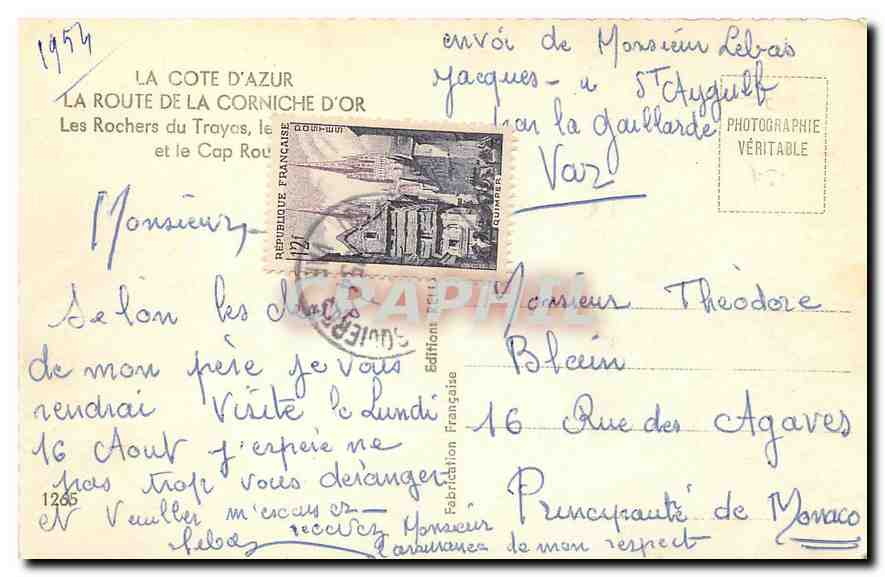 1954
LA COTE D'AZUR
LA ROUTE DE LA CORNICHE D'OR
Les Rochers du Trayas, le
et le Cap Rou
envoi de Monsieur Lebas
Jacques - a St Aygulf
par la Gaillarde
Var
PHOTOGRAPHIE
VÉRITABLE
RÉPUBLIQUE FRANÇAISE
POSTES
12f
QUIMPER
Monsieur,
Selon les d
de mon père je vous
rendrai visite le Lundi
16 Aout j'espeie ne
pas trop vous déranger
et Veuillez m'escusez
recevez Monsieur
l'assurance de mon respect
Lebas
1265
Editions RELLA
Fabrication Française
CPAPHIL
Monsieur Thèodore
Blain
16 Rue des Agaves
Principauté de Monaco